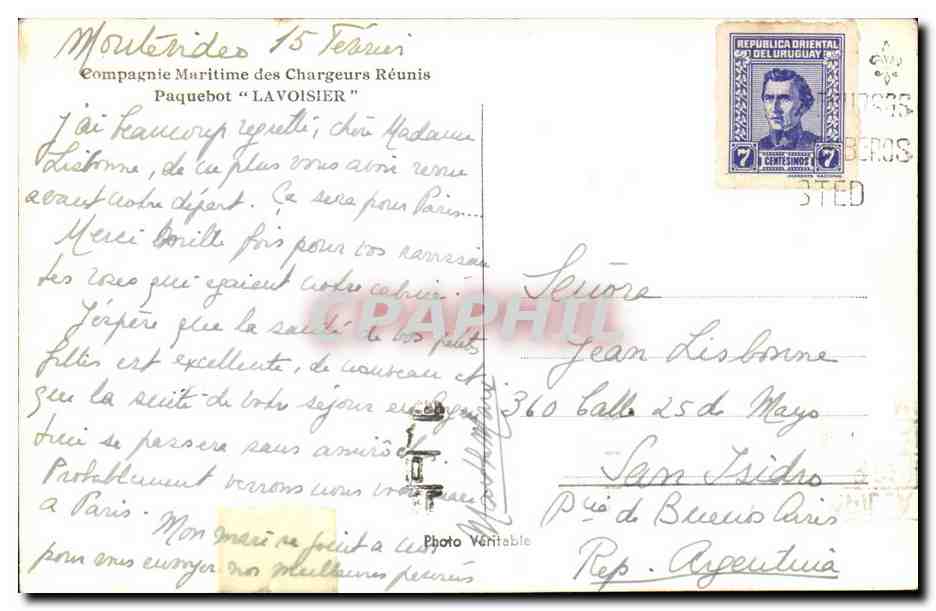 Montévideo 15 Février
Compagnie Maritime des Chargeurs Réunis
Paquebot "LAVOISIER"
J'ai beaucoup regretté, chère Madame
Lisbonne, de ne plus vous avoir revue
avant notre départ. Ça sera pour Paris...
Merci mille fois pour vos ravissan
tes roses qui égaient notre cabine.
J'espère que la santé de vos petites
filles est excellente, de nouveau et
que la suite de votre séjour en Argen
tine se passera sans anicroches.
Probablement verrons nous votre mari
à Paris. Mon mari se joint à moi
pour vous envoyer nos meilleures pensées
Photo Véritable
REPUBLICA ORIENTAL
DEL URUGUAY
7 CENTESIMOS 7
BEROS
STED
Señora
Jean Lisbonne
360 Calle 25 de Mayo
San Isidro
Pcia de Buenos Aires
Rep. Argentina
CPAPHIL